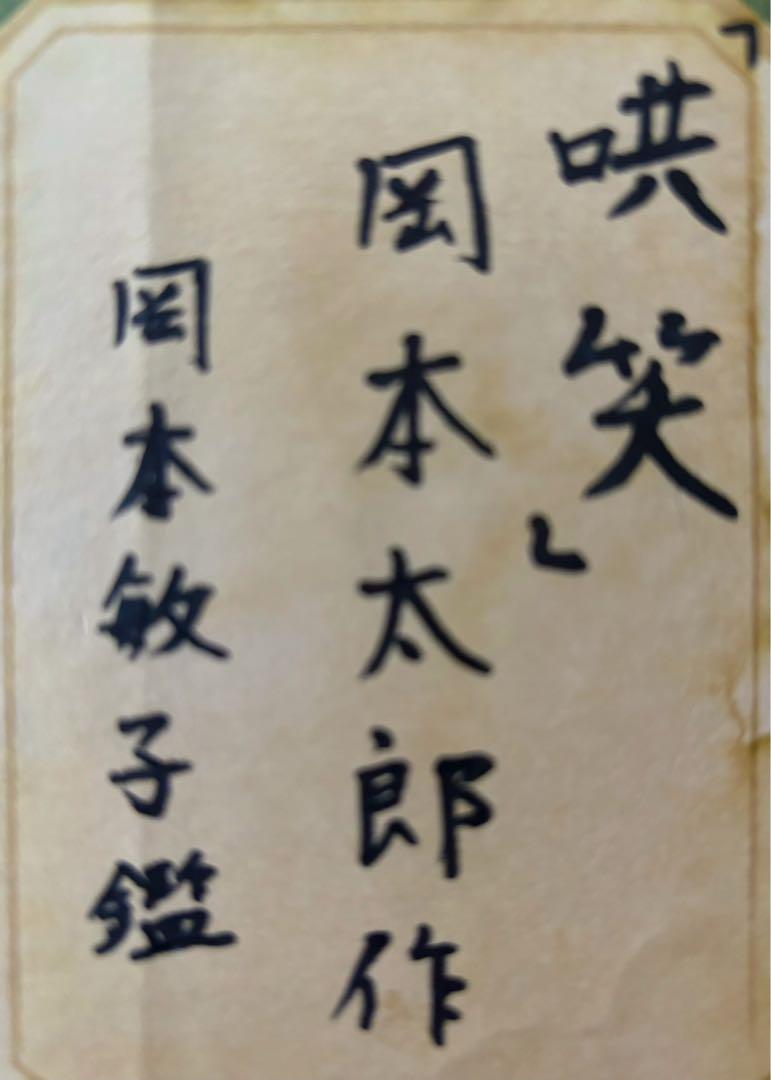 「哄笑」
岡本太郎作
岡本敏子鑑